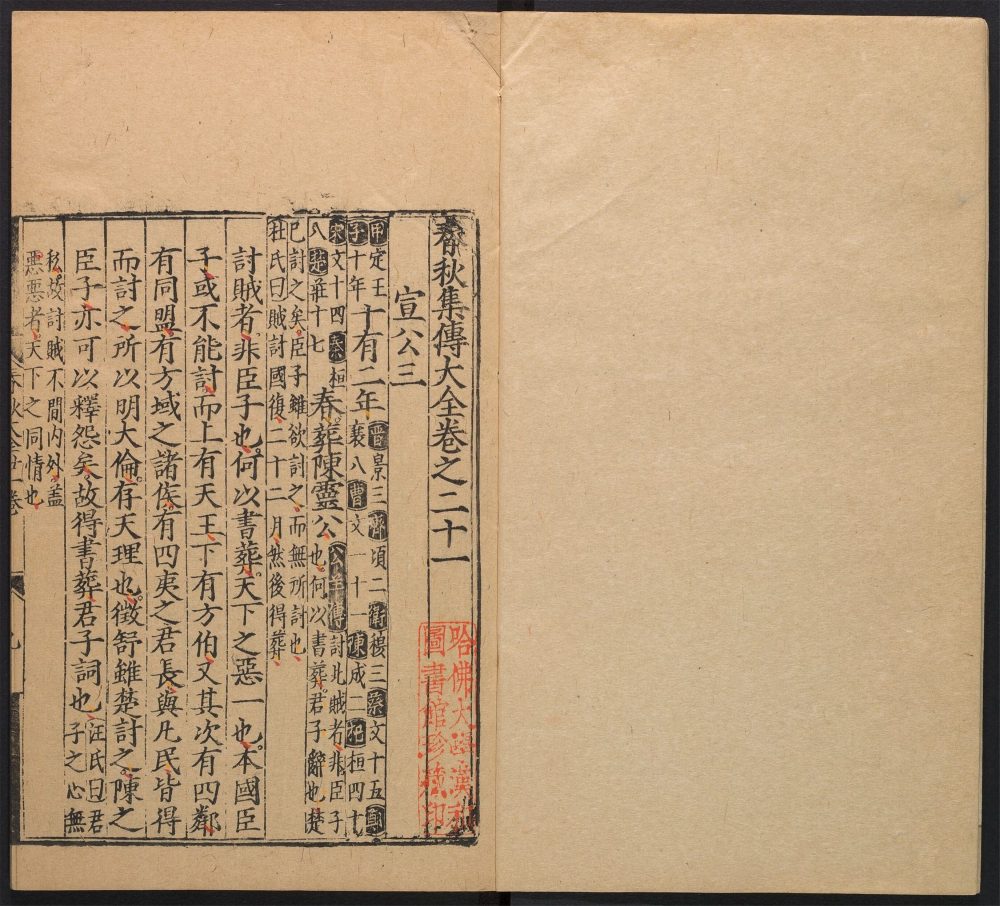 春秋集傳大全卷之二十一
宣公三
甲子定王十年十有二年晉景三齊頃二衛穆三蔡文十五鄭襄八曹文十一陳成二杞桓四十
宋文十四秦桓八楚莊十七春葬陳靈公公羊傳討此賊者非臣子也何以書葬君子辭也楚
已討之矣臣子雖欲討之而無所討也
杜氏曰賊討國復二十二月然後得葬
討賊者非臣子也何以書葬天下之惡一也本國臣
子或不能討而上有天王下有方伯又其次有四鄰
有同盟有方域之諸侯有四夷之君長與凡民皆得
而討之所以明大倫存天理也徵舒雖楚討之陳之
臣子亦可以釋怨矣故得書葬君子詞也汪氏曰君子之心無
私故討賊不間内外蓋
惡惡者天下之同情也
春秋大全廿一卷
哈佛大學漢和
圖書館珍藏印